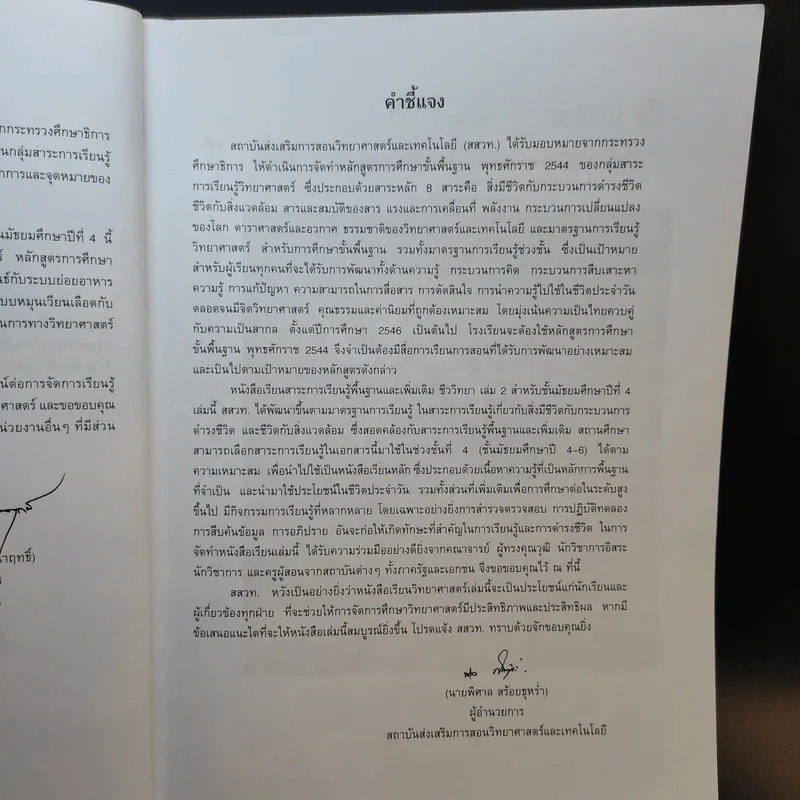 กกระทรวงศึกษาธิการ
นกลุ่มสาระการเรียนรู้
าการและจุดหมายของ
นมัธยมศึกษาปีที่ 4 นี้
์ หลักสูตรการศึกษา
ันธ์กับระบบย่อยอาหาร
บบหมุนเวียนเลือดกับ
นการทางวิทยาศาสตร์
น์ต่อการจัดการเรียนรู้
าศาสตร์ และขอขอบคุณ
น่วยงานอื่นๆ ที่มีส่วน
าฤทธิ์)
คำชี้แจง
สถาบันส่งเสริมการสอนวิทยาศาสตร์และเทคโนโลยี (สสวท.) ได้รับมอบหมายจากกระทรวง
ศึกษาธิการ ให้ดำเนินการจัดทำหลักสูตรการศึกษาขั้นพื้นฐาน พุทธศักราช 2544 ของกลุ่มสาระ
การเรียนรู้วิทยาศาสตร์ ซึ่งประกอบด้วยสาระหลัก 8 สาระคือ สิ่งมีชีวิตกับกระบวนการดำรงชีวิต
ชีวิตกับสิ่งแวดล้อม สารและสมบัติของสาร แรงและการเคลื่อนที่ พลังงาน กระบวนการเปลี่ยนแปลง
ของโลก ดาราศาสตร์และอวกาศ ธรรมชาติของวิทยาศาสตร์และเทคโนโลยี และมาตรฐานการเรียนรู้
วิทยาศาสตร์ สำหรับการศึกษาขั้นพื้นฐาน รวมทั้งมาตรฐานการเรียนรู้ช่วงชั้น ซึ่งเป็นเป้าหมาย
สำหรับผู้เรียนทุกคนที่จะได้รับการพัฒนาทั้งด้านความรู้ กระบวนการคิด กระบวนการสืบเสาะหา
ความรู้ การแก้ปัญหา ความสามารถในการสื่อสาร การตัดสินใจ การนำความรู้ไปใช้ในชีวิตประจำวัน
ตลอดจนมีจิตวิทยาศาสตร์ คุณธรรมและค่านิยมที่ถูกต้องเหมาะสม โดยมุ่งเน้นความเป็นไทยควบคู่
กับความเป็นสากล ตั้งแต่ปีการศึกษา 2546 เป็นต้นไป โรงเรียนจะต้องใช้หลักสูตรการศึกษา
ขั้นพื้นฐาน พุทธศักราช 2544 จึงจำเป็นต้องมีสื่อการเรียนการสอนที่ได้รับการพัฒนาอย่างเหมาะสม
และเป็นไปตามเป้าหมายของหลักสูตรดังกล่าว
หนังสือเรียนสาระการเรียนรู้พื้นฐานและเพิ่มเติม ชีววิทยา เล่ม 2 สำหรับชั้นมัธยมศึกษาปีที่ 4
เล่มนี้ สสวท. ได้พัฒนาขึ้นตามมาตรฐานการเรียนรู้ ในสาระการเรียนรู้เกี่ยวกับสิ่งมีชีวิตกับกระบวนการ
ดำรงชีวิต และชีวิตกับสิ่งแวดล้อม ซึ่งสอดคล้องกับสาระการเรียนรู้พื้นฐานและเพิ่มเติม สถานศึกษา
สามารถเลือกสาระการเรียนรู้ในเอกสารนี้มาใช้ในช่วงชั้นที่ 4 (ชั้นมัธยมศึกษาปี 4-6) ได้ตาม
ความเหมาะสม เพื่อนำไปใช้เป็นหนังสือเรียนหลัก ซึ่งประกอบด้วยเนื้อหาความรู้ที่เป็นหลักการพื้นฐาน
ที่จำเป็น และนำมาใช้ประโยชน์ในชีวิตประจำวัน รวมทั้งส่วนที่เพิ่มเติมเพื่อการศึกษาต่อในระดับสูง
ขึ้นไป มีกิจกรรมการเรียนรู้ที่หลากหลาย โดยเฉพาะอย่างยิ่งการสำรวจตรวจสอบ การปฏิบัติทดลอง
การสืบค้นข้อมูล การอภิปราย อันจะก่อให้เกิดทักษะที่สำคัญในการเรียนรู้และการดำรงชีวิต ในการ
จัดทำหนังสือเรียนเล่มนี้ ได้รับความร่วมมืออย่างดียิ่งจากคณาจารย์ ผู้ทรงคุณวุฒิ นักวิชาการอิสระ
นักวิชาการ และครูผู้สอนจากสถาบันต่างๆ ทั้งภาครัฐและเอกชน จึงขอขอบคุณไว้ ณ ที่นี้
สสวท. หวังเป็นอย่างยิ่งว่าหนังสือเรียนวิทยาศาสตร์เล่มนี้จะเป็นประโยชน์แก่นักเรียนและ
ผู้เกี่ยวข้องทุกฝ่าย ที่จะช่วยให้การจัดการศึกษาวิทยาศาสตร์มีประสิทธิภาพและประสิทธิผล หากมี
ข้อเสนอแนะใดที่จะให้หนังสือเล่มนี้สมบูรณ์ยิ่งขึ้น โปรดแจ้ง สสวท. ทราบด้วยจักขอบคุณยิ่ง
(นายพิศาล สร้อยธุหร่ำ)
ผู้อำนวยการ
สถาบันส่งเสริมการสอนวิทยาศาสตร์และเทคโนโลยี